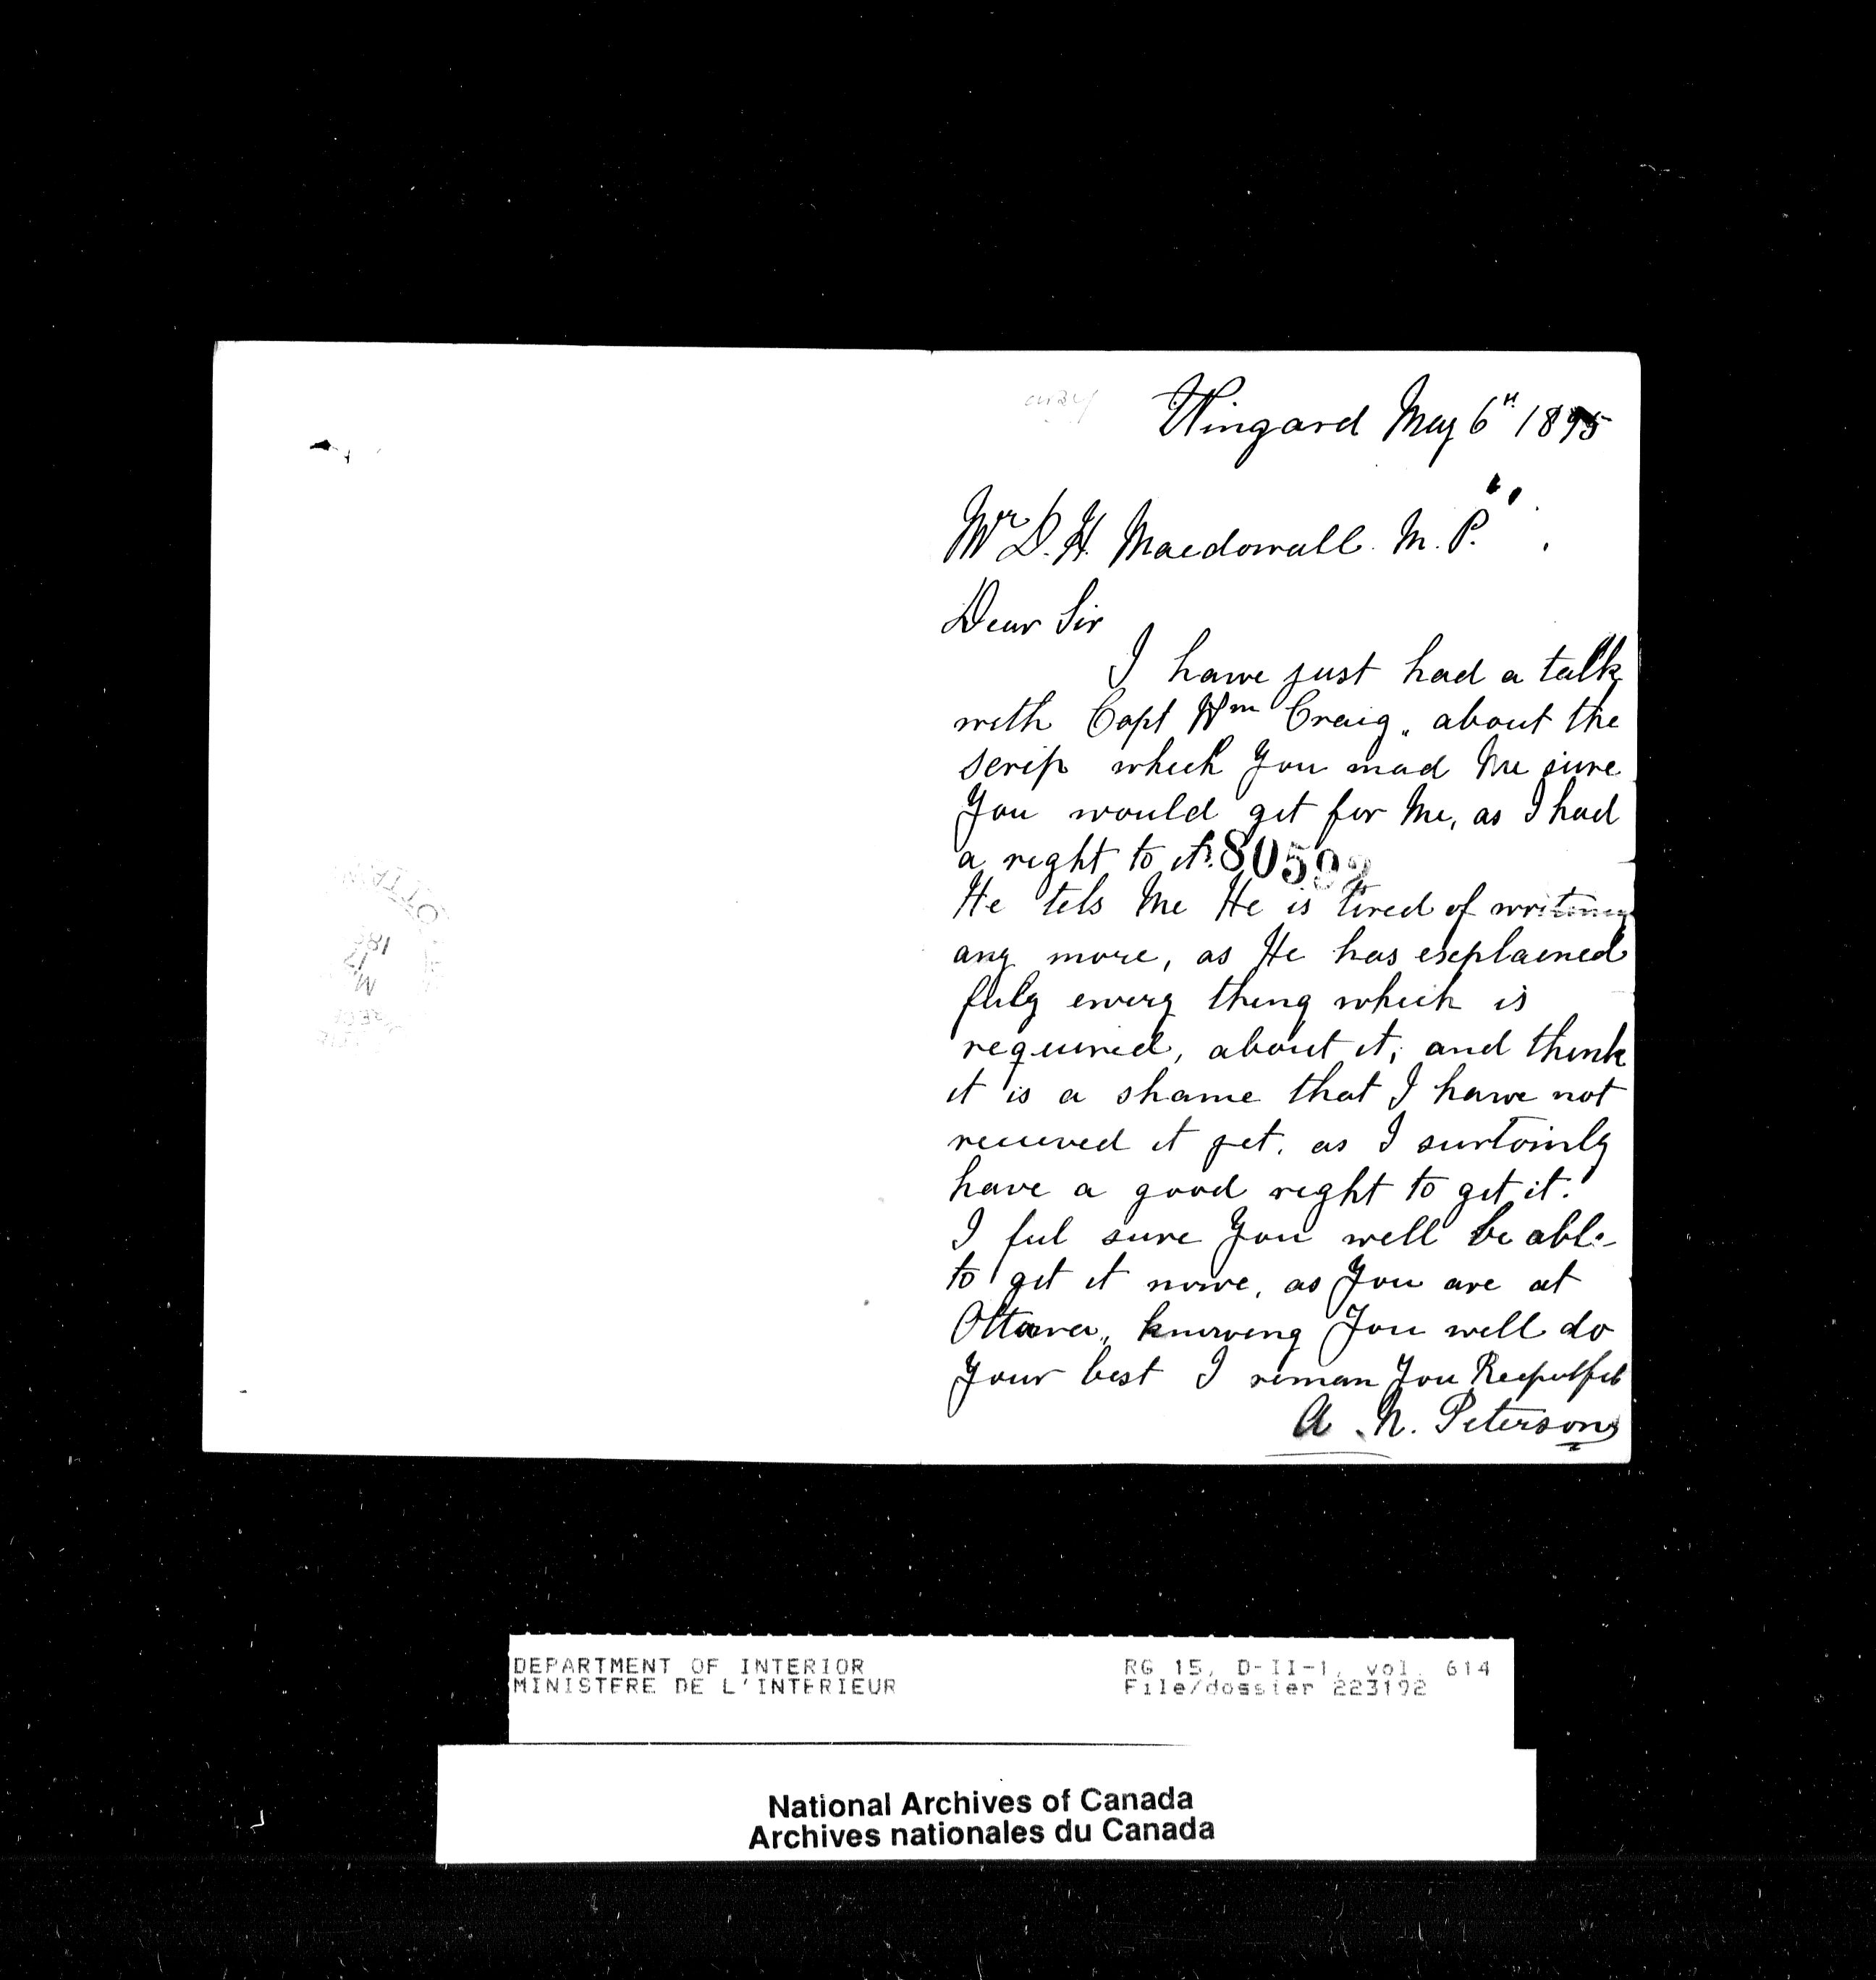 Wingard May 6th 1895
Mr D. H. Macdowall. M. P.
Dear Sir
I hawe just had a talk
with Capt Wm Craig, about the
scrip which You mad Me sure
You would get for Me, as I had
a right to it. 80592
He tels Me He is tired of writing
any more, as He has explained
fuly ewery thing which is
required, about it, and think
it is a shame that I hawe not
received it yet. as I surtainly
have a good right to get it.
I ful sure You will be able
to get it nowe, as You are at
Ottawa, knowing You will do
Your best I reman You Resputful
A. N. Peterson
OTTAWA
DEPARTMENT OF INTERIOR
MINISTERE DE L'INTERIEUR
RG 15, D-II-1, vol. 614
File/dossier 223192
National Archives of Canada
Archives nationales du Canada